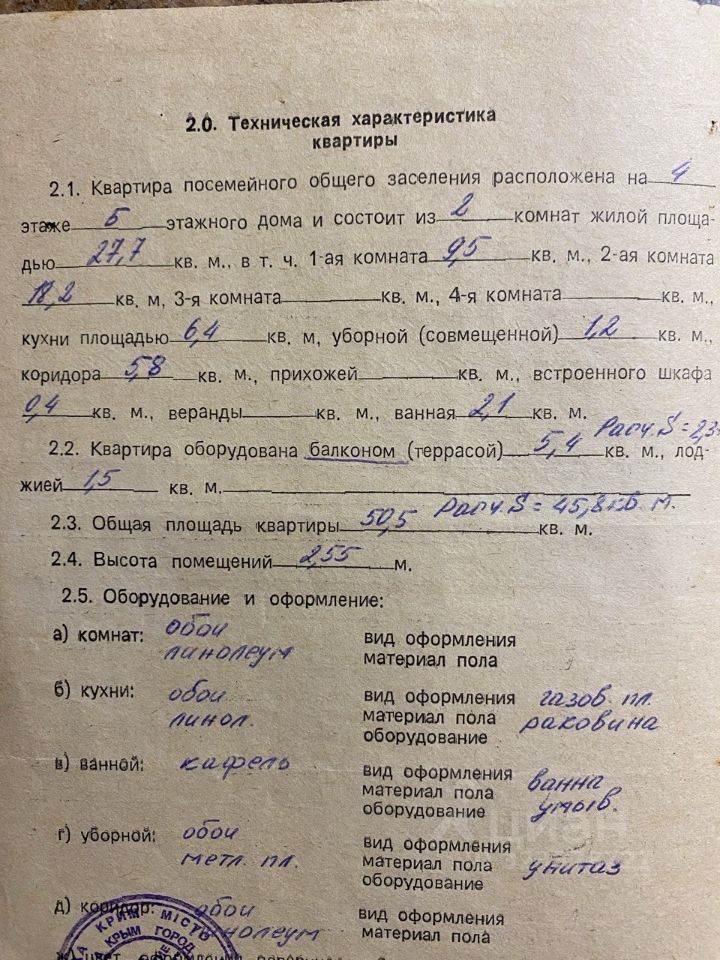 2.0. Техническая характеристика
квартиры
2.1. Квартира посемейного общего заселения расположена на 4
этаже 5 этажного дома и состоит из 2 комнат жилой площа-
дью 27,7 кв. м., в т. ч. 1-ая комната 9,5 кв. м., 2-ая комната
18,2 кв. м, 3-я комната кв. м., 4-я комната кв. м.,
кухни площадью 6,4 кв. м, уборной (совмещенной) 1,2 кв. м.,
коридора 5,8 кв. м., прихожей кв. м., встроенного шкафа
0,4 кв. м., веранды кв. м., ванная 2,1 кв. м.
Расч. S = 2,3
2.2. Квартира оборудована балконом (террасой) 5,4 кв. м., лод-
жией 1,5 кв. м.
Расч. S = 45,8 кв. м.
2.3. Общая площадь квартиры 50,5 кв. м.
2.4. Высота помещений 2,55 м.
2.5. Оборудование и оформление:
а) комнат: обои вид оформления
линолеум материал пола
б) кухни: обои вид оформления газов. пл.
линол. материал пола раковина
оборудование
в) ванной: кафель вид оформления
материал пола ванна
оборудование умыв.
г) уборной: обои вид оформления
метл. пл. материал пола унитаз
оборудование
циан
д) коридор: обои вид оформления
линолеум материал пола
КРИМ МІСТО
КРЫМ ГОРОД